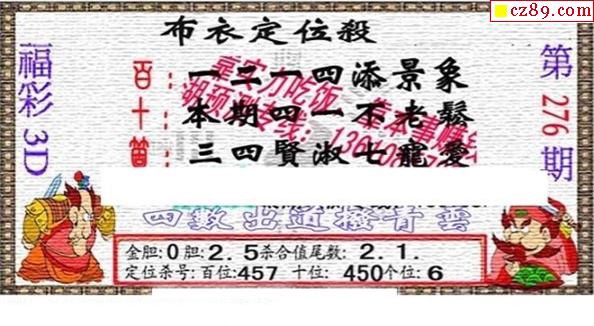 cz89.com
布衣定位殺
福彩3D
第276期
百: 一二一四添景象
十: 本期四一不老鬆
三四賢淑七寵愛
四數出道撥青雲
金胆:0胆:2.5杀合值尾数:2.1.
定位杀号:百位:457 十位:450个位:6